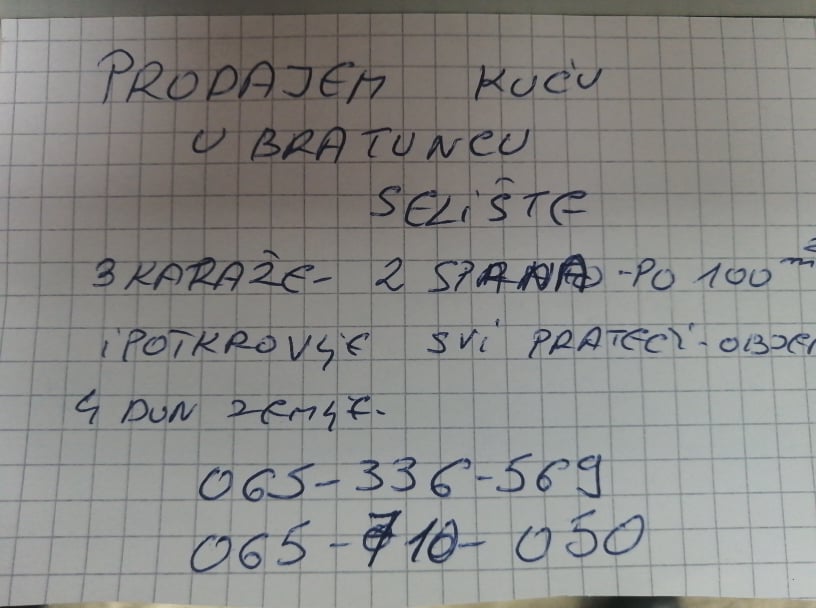 PRODAJEM KUĆU
U BRATUNCU
SELIŠTE
3 KARAŽE - 2 STANA - PO 100 m²
i POTKROVLJE SVi PRATEĆI - OBJEK
4 DUN ZEMLJE.
065-336-569
065-710-050